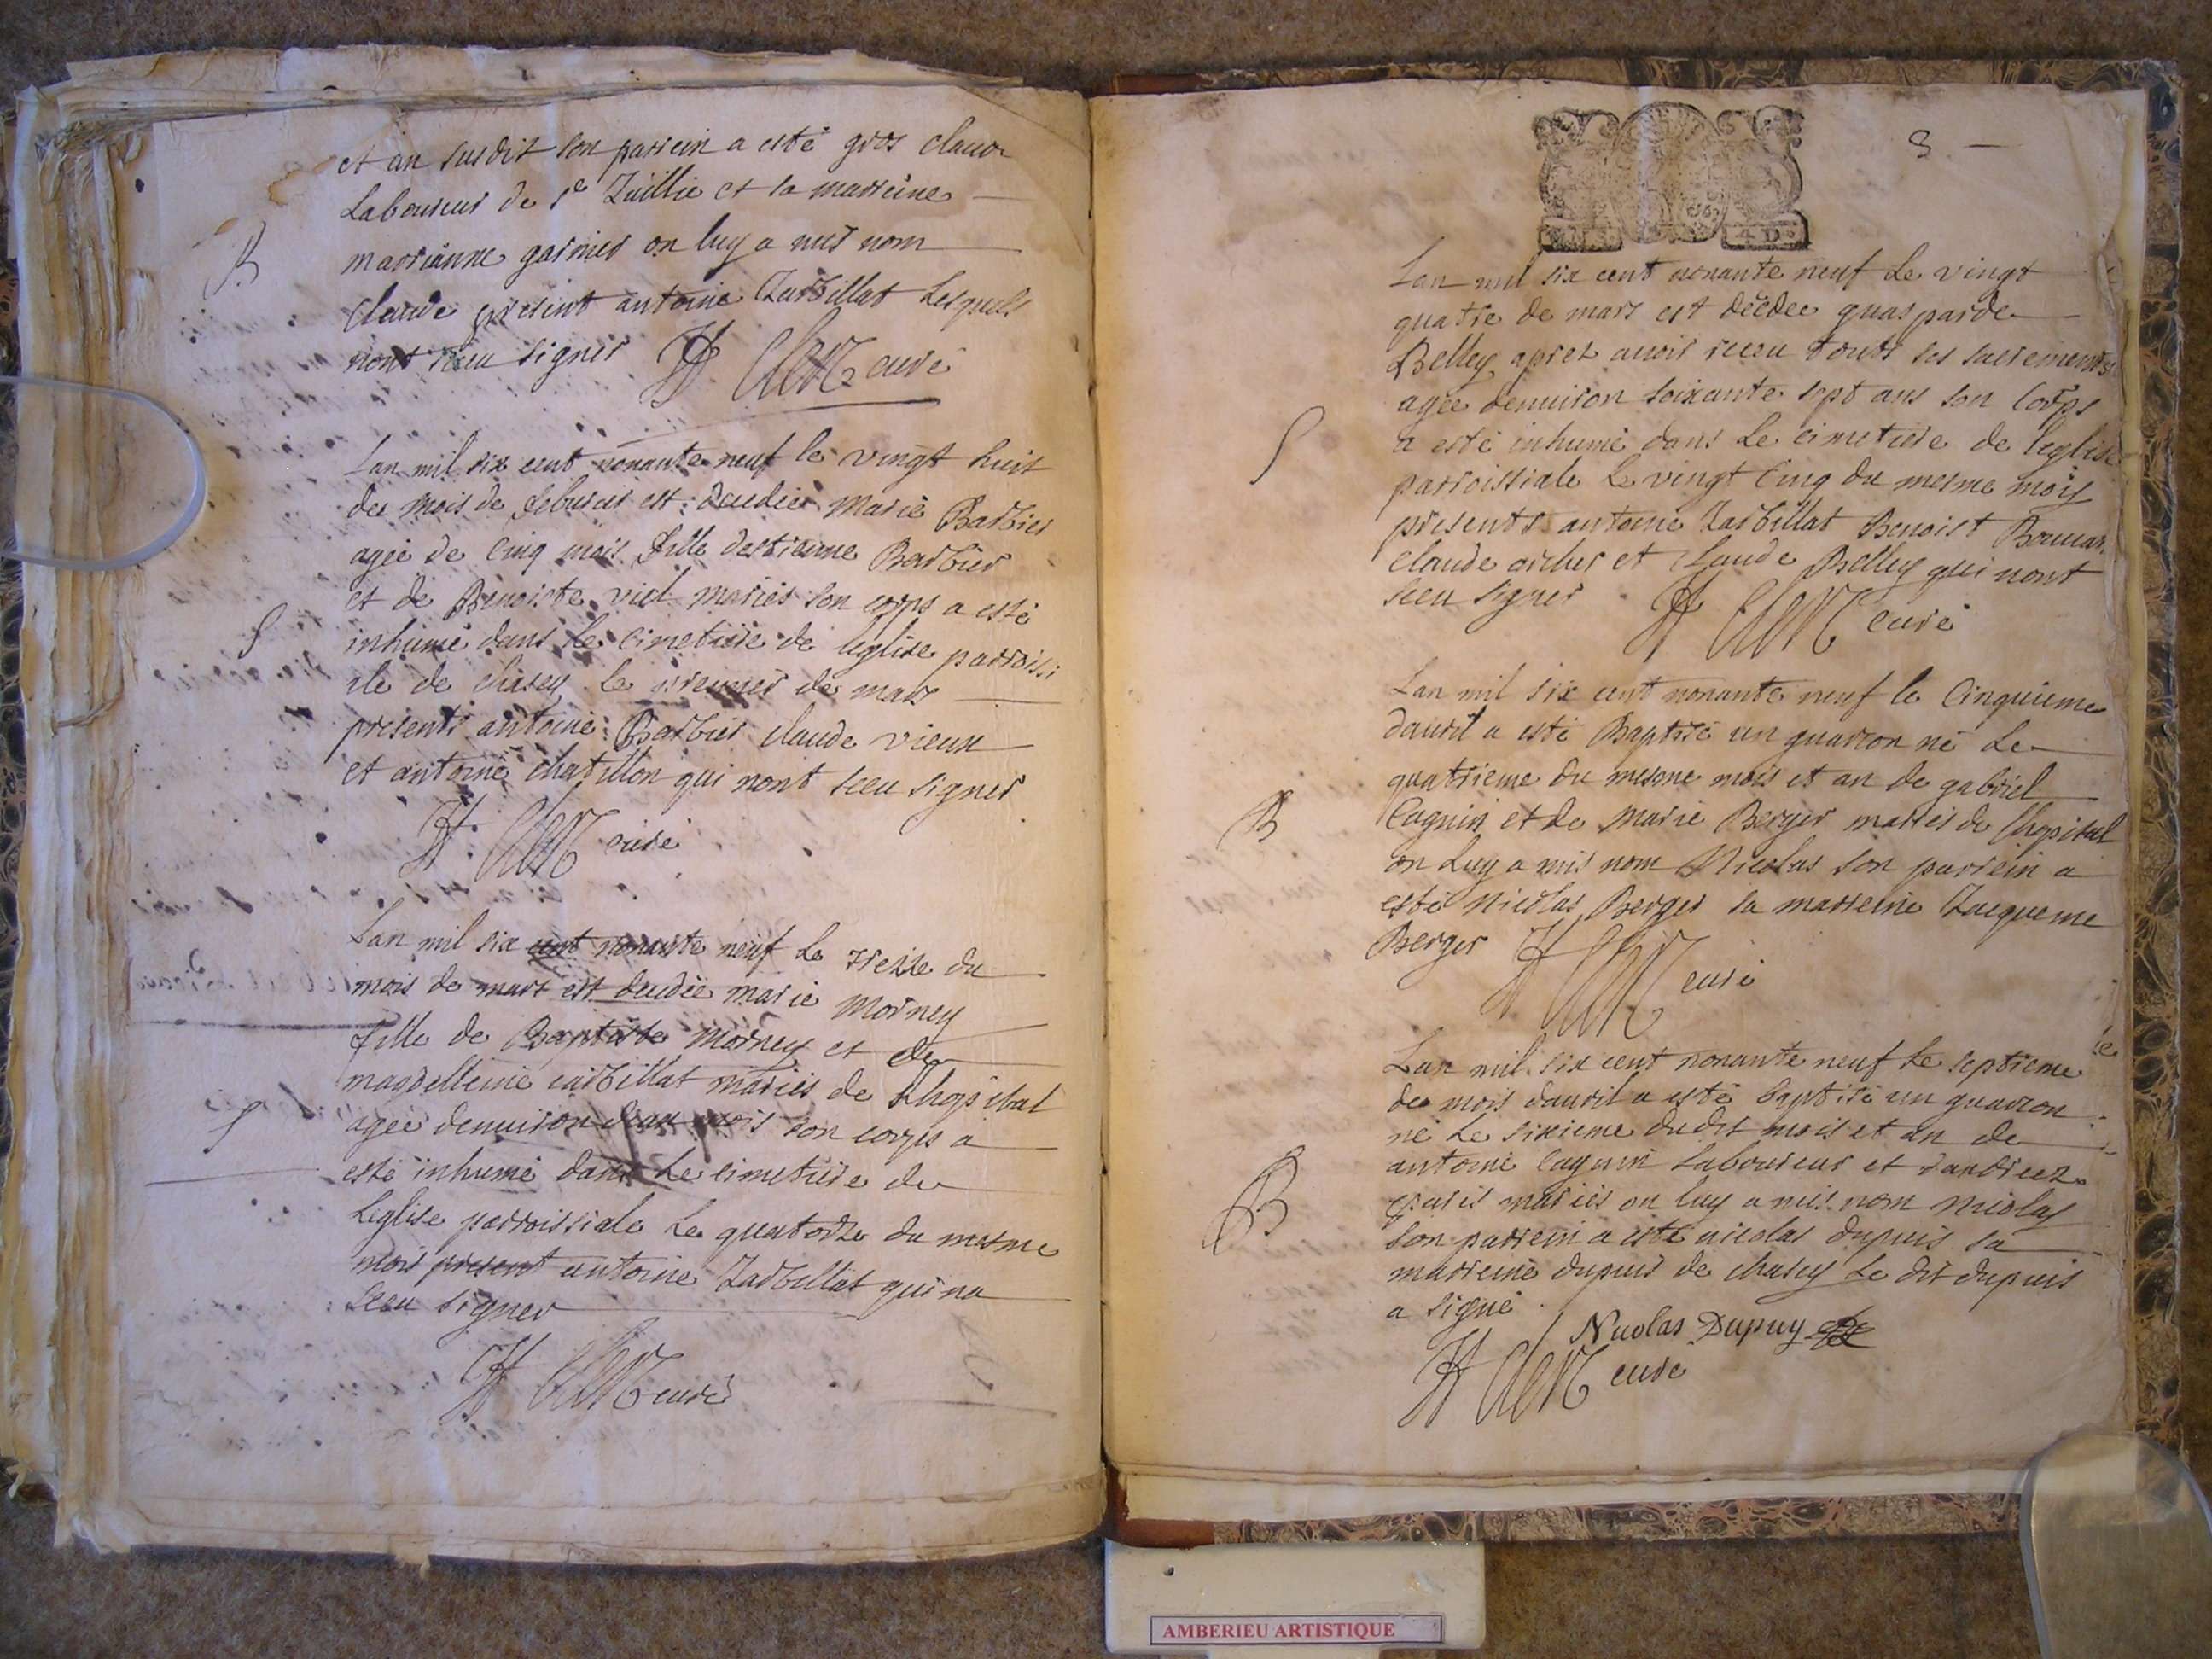 et an susdit son parrein a esté gros claude
Laboureur de st Zuillie et sa marreine
B
marrianne garnier on luy a mis nom
Claude present antoine Zarbillat Lesquels
nont sceu signer curé
Lan mil six cent nonante neuf le vingt huit
du mois de feburier est decedée Marie Barbier
agée de Cinq mois fille destienne Barbier
et de Benoiste viel mariés son corps a esté
S
inhumé dans le cimetiere de leglise parroissi
ale de chasey le premier de mars
presents antoine Barbier claude vieux
et antoine chatillon qui nont sceu signer
curé
Lan mil six cent nonante neuf Le treize du
mois de mars est decedée marie Morney
fille de Baptiste Morney et de
magdelleine carbillat mariés de Lhopital
S
agée denuiron deux mois son corps a
esté inhumé dans Le cimetiere de
Leglise parroissiale Le quatorze du mesme
mois present antoine Zarbillat qui na
sceu signer
curé
8
4 D
Lan mil six cent nonante neuf Le vingt
quatre de mars est décedee guasparde
Belley apres auoir receu touts ses sacrements
agée denuiron soixante sept ans son Corps
S
a esté inhumé dans Le cimetiere de leglise
parroissiale Le vingt Cinq du mesme mois
presents antoine Zarbillat Benoist
claude et Claude Belley qui nont
sceu signer curé
Lan mil six cent nonante neuf le Cinquieme
dauril a esté Baptisé un guarcon né Le
quatrieme du mesme mois et an de gabriel
B
Cagnin et de Marie Berger mariés de Lhopital
on Luy a mis nom Nicolas son parrein a
esté Nicolas Berger sa marreine Zacqueme
Berger
curé
Lan mil six cent nonante neuf Le septieme
du mois dauril a esté baptisé un guarcon
né Le sixieme du dit mois et an de
antoine Cagnin Laboureur et dandreez
B
paris mariés on luy a mis nom nicolas
Son parrein a esté nicolas dupuis sa
marreine dupuis de chasey Le dit dupuis
a signé
Nicolas Dupuy
curé
AMBERIEU ARTISTIQUE